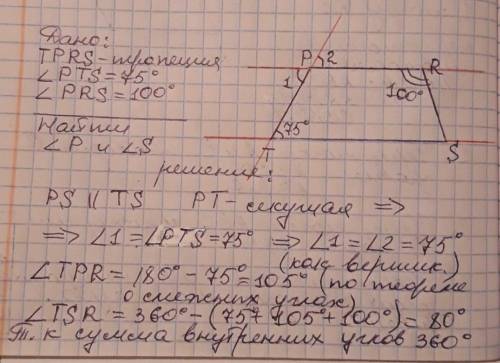 Дано:
TPRS - трапеция
∠PTS = 75°
∠PRS = 100°
Найти
∠P и ∠S
P 2 R
1 100°
75°
T S
решение:
PS || TS PT - секущая =>
=> ∠1 = ∠PTS = 75° => ∠1 = ∠2 = 75°
(как вершик.)
∠TPR = 180° - 75° = 105° (по теореме
о смежных углах)
∠TSR = 360° - (75 + 105° + 100°) = 80°
Т. к сумма внутренних углов 360°